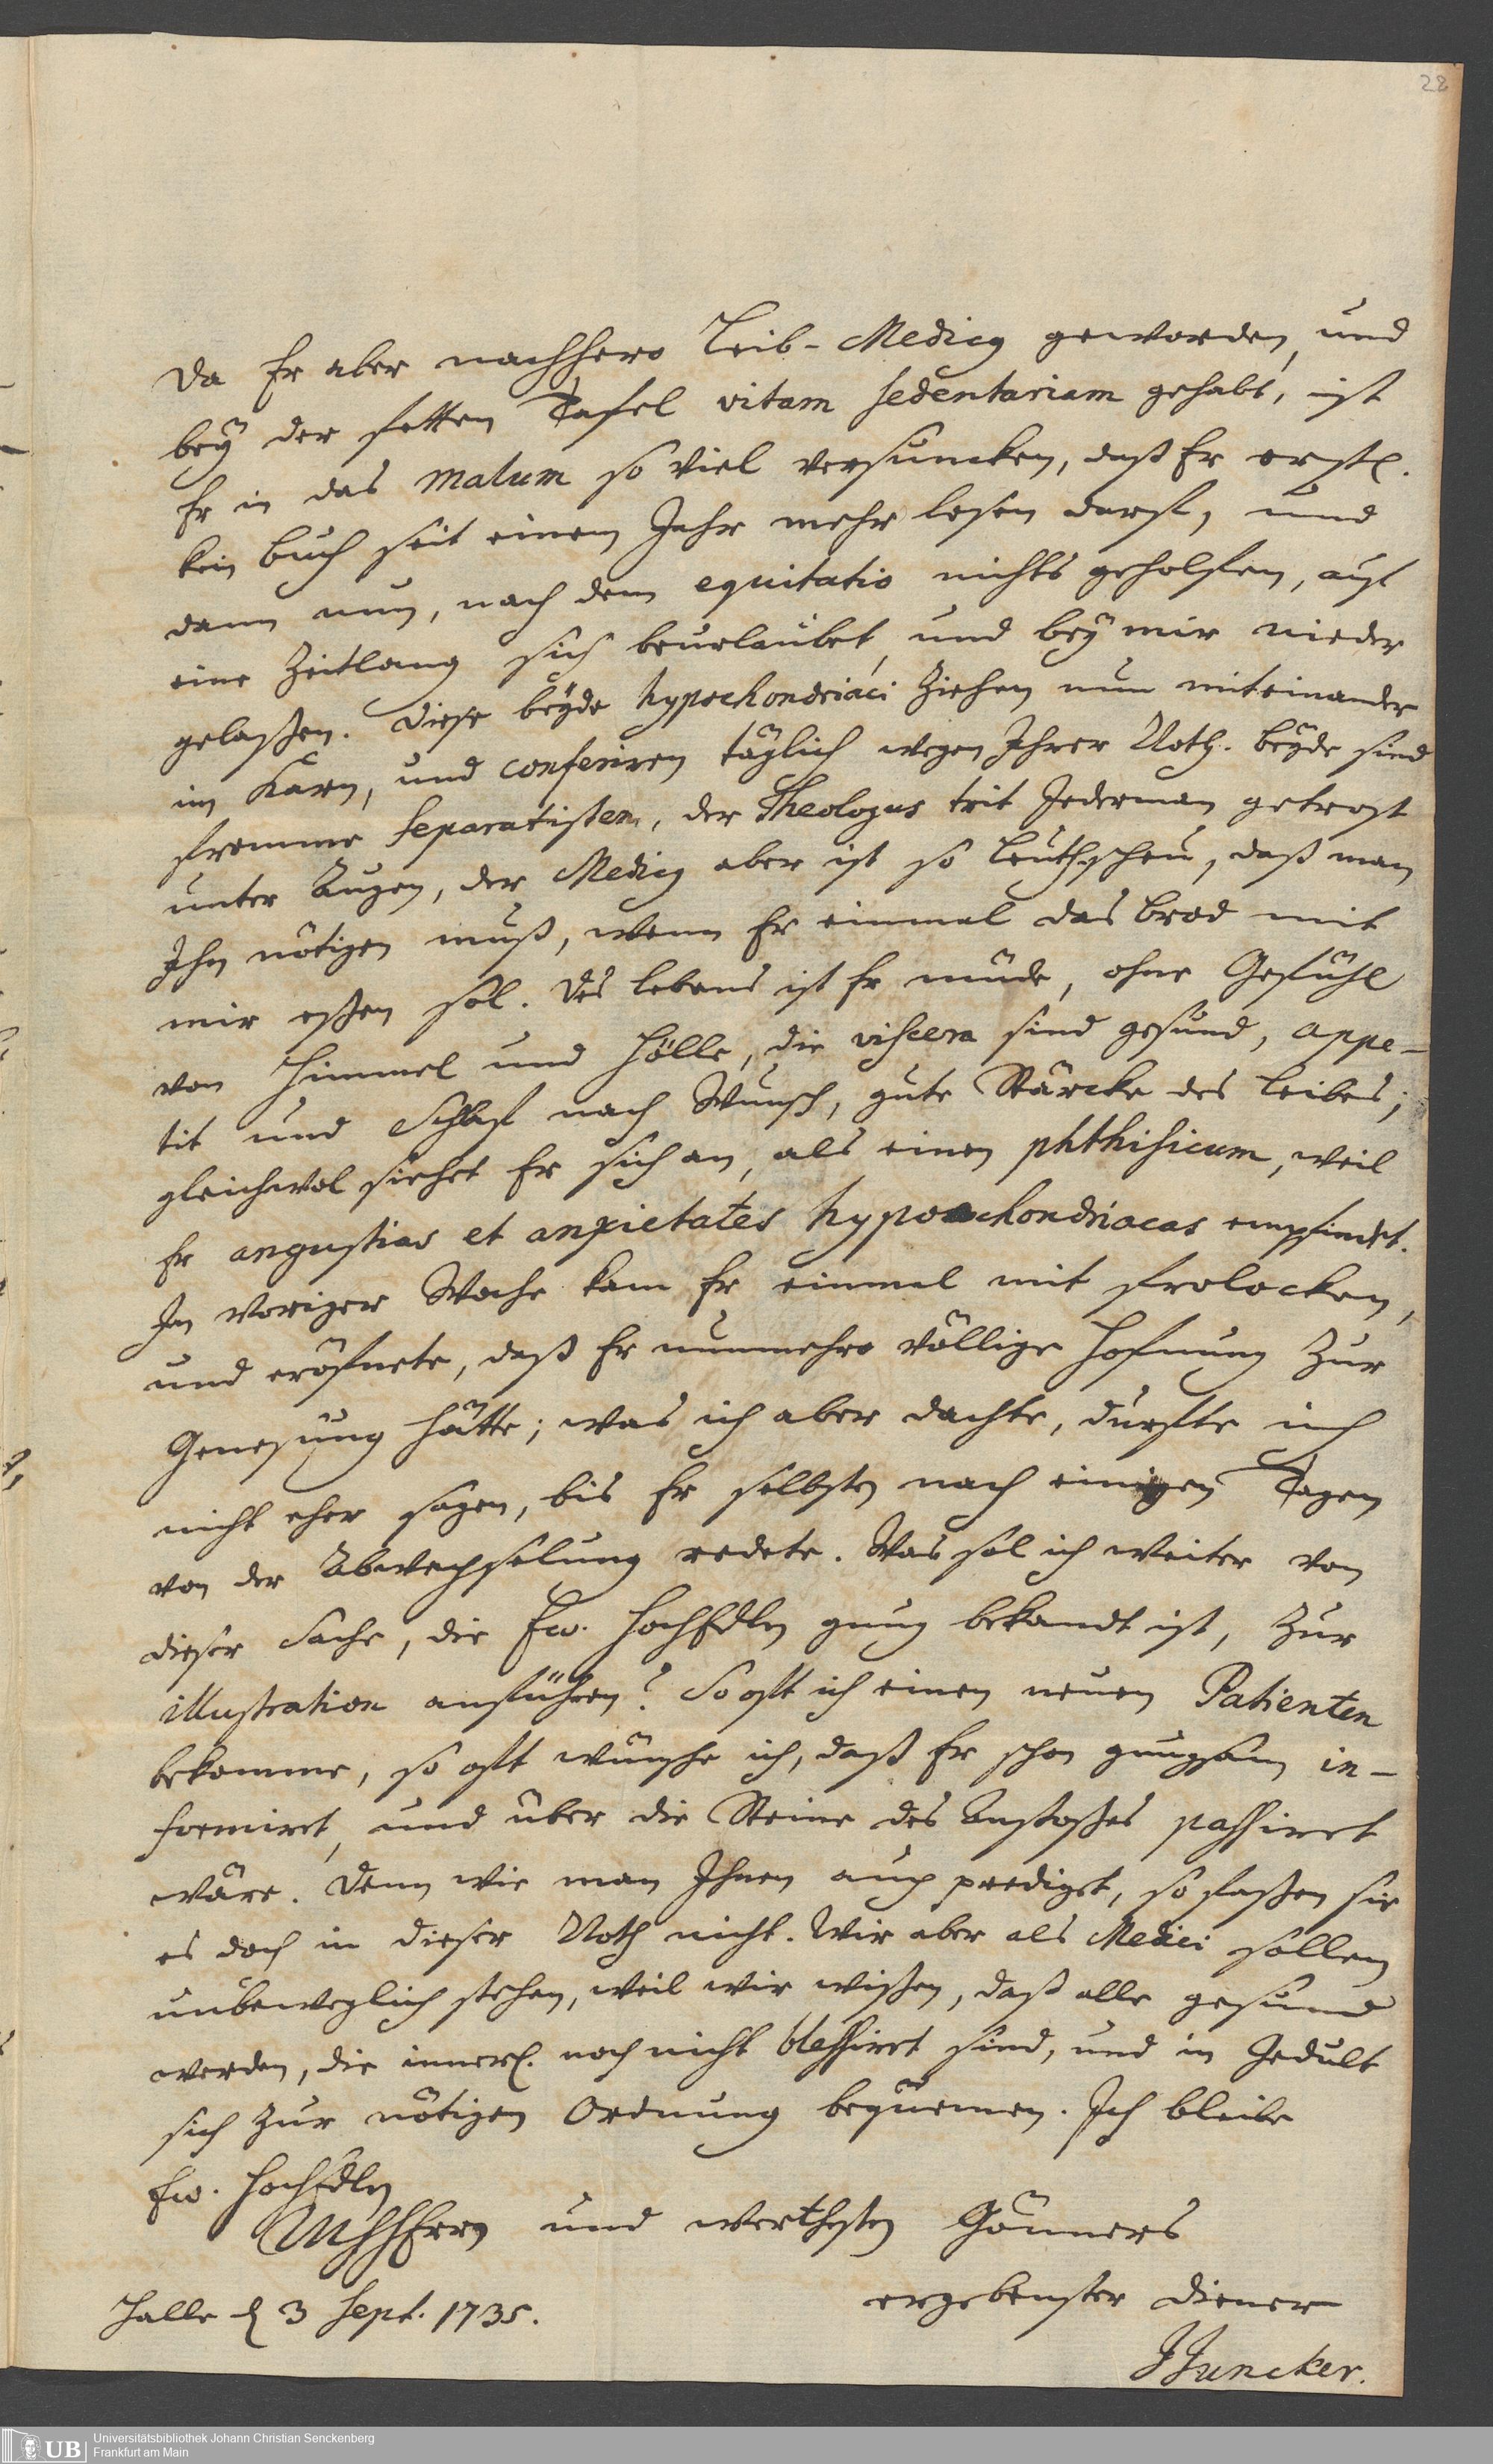 22
Da Er aber nachhero Leib-Medicus geworden, und
bey der fetten Tafel vitam sedentariam gehabt, ist
Er in das malum so viel versuncken, daß Er erstl.
kein Buch seit einem Jahr mehr lesen darf, und
dann nun, nach dem equitatio nichts geholfen, auf
eine Zeitlang sich beurlaubet, und bey mir nieder
gelaßen. Diese beyde hypochondriaci ziehen nun miteinander
im Karn, und conferiren täglich wegen Ihrer Noth. beyde sind
fromme Separatisten, der Theologus trit Jederman getrost
unter Augen, der Medicus aber ist so leuthscheu, daß man
Ihn nötigen muß, wenn Er einmal das brod mit
mir eßen sol. Des lebens ist Er müde, ohne Gefühl
von Himmel und Hölle, die viscera sind gesund, appe-
tit und Schlaf nach Wunsch, gute Stärcke des Leibes;
gleichwol siehet Er sich an, als einen phthisicum, weil
Er angustias et anxietates hypochondriacas empfindet.
In voriger Woche kam Er einmal mit frolocken,
und eröfnete, daß Er nunmehro völlige Hofnung zur
Genesung hätte; was ich aber dachte, durfte ich
nicht eher sagen, bis Er selbsten nach einigen Tagen
von der Abwechselung redete. Was sol ich weiter von
dieser Sache, die Ew. HochEdln gnug bekandt ist, zur
illustration anführen? So oft ich einen neuen Patienten
bekomme, so oft wünsche ich, daß Er schon gnugsam in-
formiret, und über die Steine des Anstoßes passiret
wäre. Denn wie man Ihnen auch prediget, so faßen sie
es doch in dieser Noth nicht. Wir aber als Medici sollen
unbeweglich stehen, weil wir wißen, daß alle gesund
werden, die innerl. noch nicht blessiret sind, und in Gedult
sich zur nötigen Ordnung bequemen. Ich bleibe
Ew. HochEdln
MhhErrn und werthesten Gönners
ergebenster Diener
Halle d 3 Sept. 1735.
JJuncker.
UB Universitätsbibliothek Johann Christian Senckenberg
Frankfurt am Main